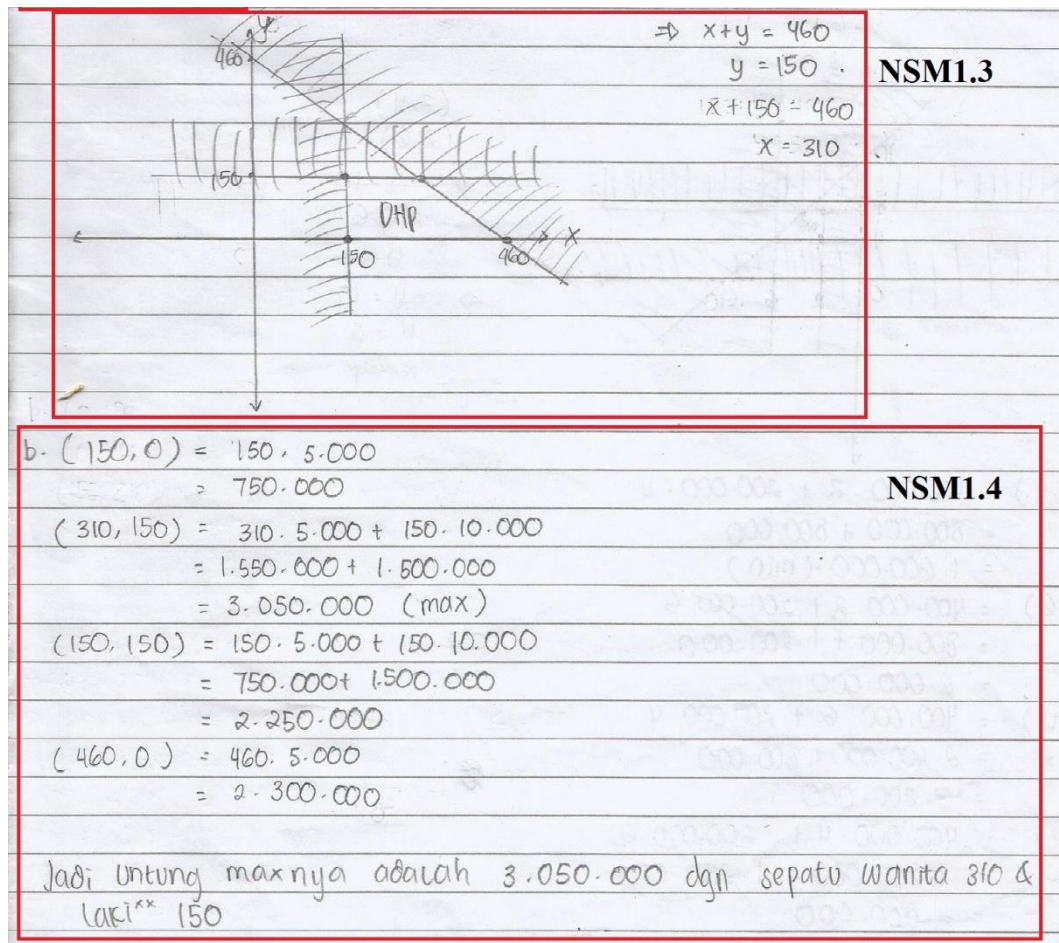 y
460
150
DHP
x
150
460
⇒ x+y = 460
y = 150
x + 150 = 460
x = 310
NSM1.3
b. (150, 0) = 150 . 5.000
= 750.000
NSM1.4
(310, 150) = 310 . 5.000 + 150 . 10.000
= 1.550.000 + 1.500.000
= 3.050.000 (max)
(150, 150) = 150 . 5.000 + 150 . 10.000
= 750.000 + 1.500.000
= 2.250.000
(460, 0) = 460 . 5.000
= 2.300.000
Jadi untung maxnya adalah 3.050.000 dgn sepatu wanita 310 &
laki×× 150